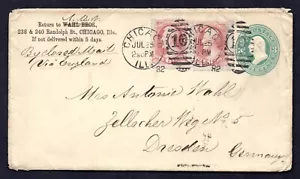 Return to WAHL BROS.,
238 & 240 Randolph St., CHICAGO, Ills.
If not delivered within 5 days.
By closed Mail
Via England
CHICAGO
JUL 25
ILL.
82
16
82
Mrs Antonie Wahl
Zellscher Weg No 5
Dresden
Germany